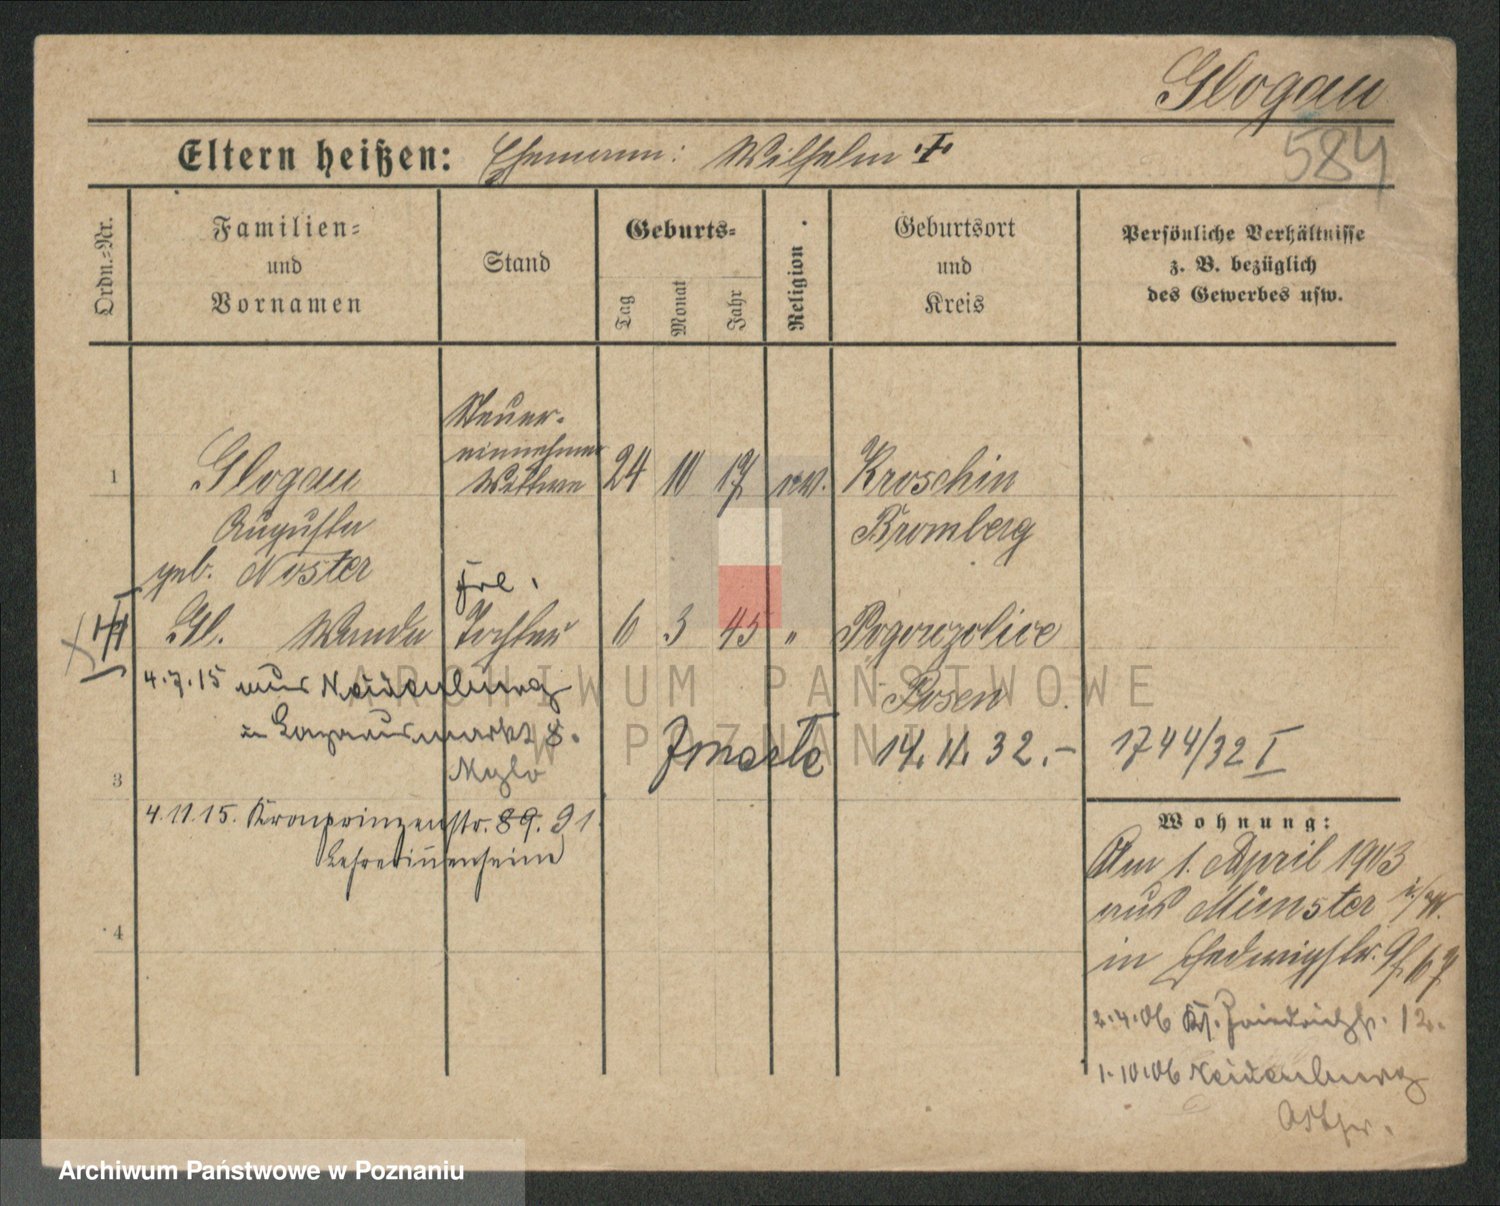 Glogau
584
Eltern heißen: Ehemann: Wilhelm †
Ordn.-Nr.
Familien-
und
Vornamen
Stand
Geburts-
Tag
Monat
Jahr
Religion
Geburtsort
und
Kreis
Persönliche Verhältnisse
z. B. bezüglich
des Gewerbes usw.
1
Glogau
Auguste
geb. Noster
Steuer-
einnehmer
Wittwe
24 10 17 ev. Kroschin
Bromberg
Frl.
Gl. Wanda Tochter 6 3 45 "
Posen
4.7.15 aus Neidenburg
in Lazarusmarkt 8.
14. 11. 32. – 1744/32 I
3
4.11.15. Kronprinzenstr. 89. 91.
Lehrerinnenheim
4
Wohnung:
Am 1. April 1903
aus Münster i/W.
in Hedwigstr.
2.4.06 12.
1.10.06 Neidenburg
Ostpr.
ARCHIWUM PAŃSTWOWE
W POZNANIU
Archiwum Państwowe w Poznaniu